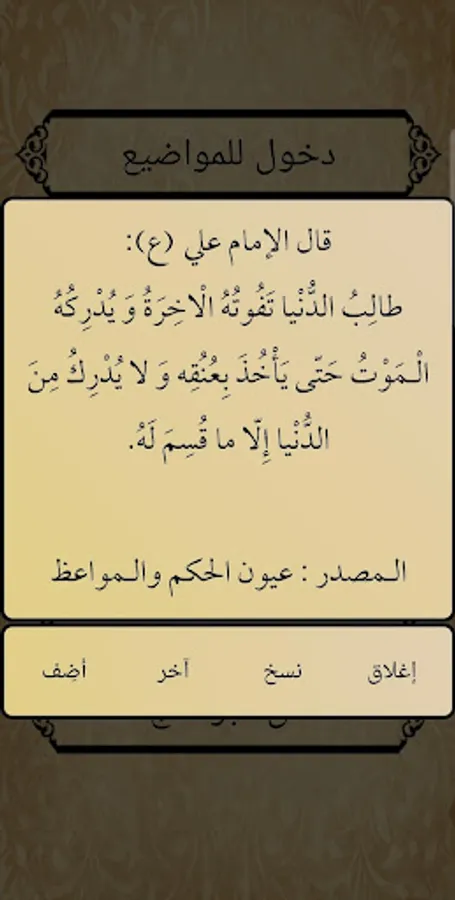 دخول للمواضيع
قال الإمام علي (ع):
طالِبُ الدُّنْيا تَفُوتُهُ الْاخِرَةُ وَ يُدْرِكُهُ
الْـمَوْتُ حَتّى يَأْخُذَ بِعُنُقِه وَ لا يُدْرِكُ مِنَ
الدُّنْيا إِلّا ما قُسِمَ لَهُ.
الـمصدر : عيون الحكم والـمواعظ
إغلاق نسخ آخر أضِف